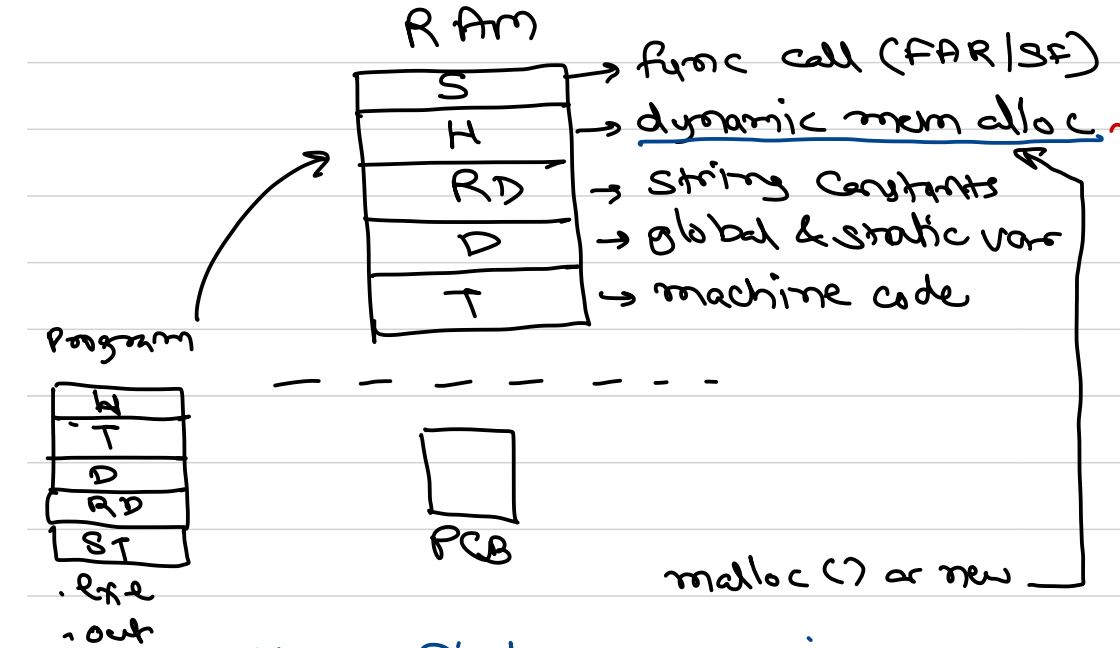 RAM
S → func call (FAR/SF)
H → dynamic mem alloc
RD → string constants
D → global & static vars
T → machine code
Program
H
T
D
RD
ST
.exe
.out
PCB
malloc () or new